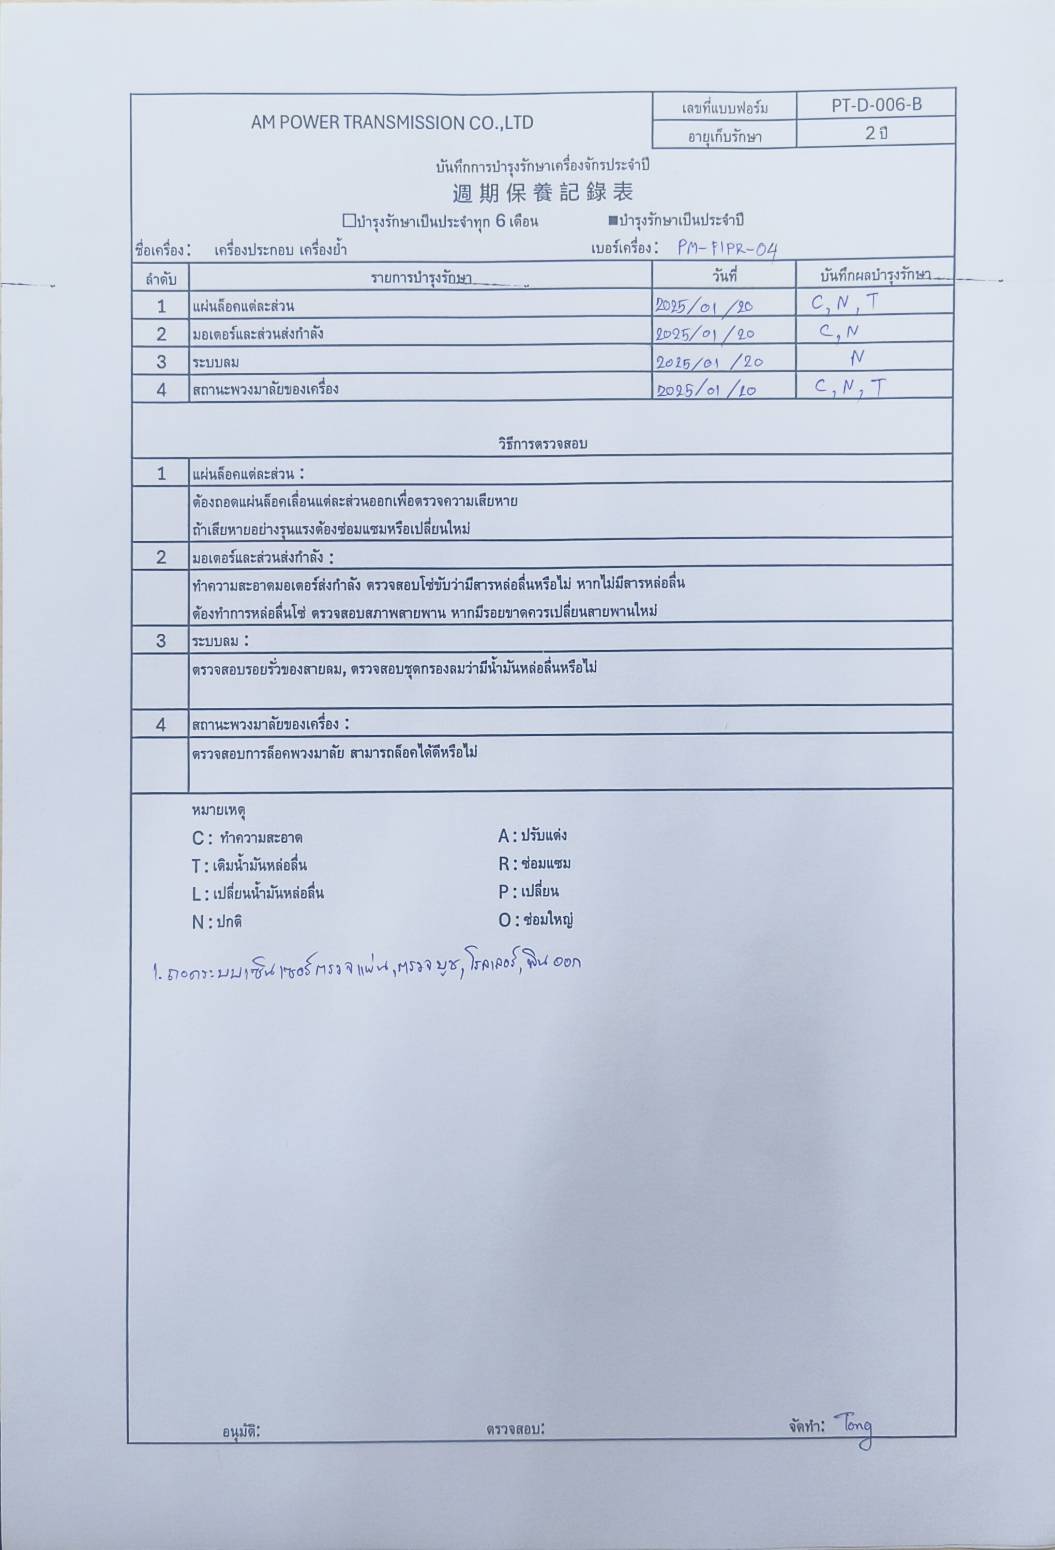 AM POWER TRANSMISSION CO.,LTD
เลขที่แบบฟอร์ม PT-D-006-B
อายุเก็บรักษา 2 ปี
บันทึกการบำรุงรักษาเครื่องจักรประจำปี
週期保養記錄表
☐บำรุงรักษาเป็นประจำทุก 6 เดือน ■บำรุงรักษาเป็นประจำปี
ชื่อเครื่อง: เครื่องประกอบ เครื่องย้ำ เบอร์เครื่อง: PM-FIPR-04
ลำดับ รายการบำรุงรักษา วันที่ บันทึกผลบำรุงรักษา
1 แผ่นล็อคแต่ละส่วน 2025/01/20 C, N, T
2 มอเตอร์และส่วนส่งกำลัง 2025/01/20 C, N
3 ระบบลม 2025/01/20 N
4 สถานะพวงมาลัยของเครื่อง 2025/01/20 C, N, T
วิธีการตรวจสอบ
1 แผ่นล็อคแต่ละส่วน :
ต้องถอดแผ่นล็อคเลื่อนแต่ละส่วนออกเพื่อตรวจความเสียหาย
ถ้าเสียหายอย่างรุนแรงต้องซ่อมแซมหรือเปลี่ยนใหม่
2 มอเตอร์และส่วนส่งกำลัง :
ทำความสะอาดมอเตอร์ส่งกำลัง ตรวจสอบโซ่ขับว่ามีสารหล่อลื่นหรือไม่ หากไม่มีสารหล่อลื่น
ต้องทำการหล่อลื่นโซ่ ตรวจสอบสภาพสายพาน หากมีรอยขาดควรเปลี่ยนสายพานใหม่
3 ระบบลม :
ตรวจสอบรอยรั่วของสายลม, ตรวจสอบชุดกรองลมว่ามีน้ำมันหล่อลื่นหรือไม่
4 สถานะพวงมาลัยของเครื่อง :
ตรวจสอบการล็อคพวงมาลัย สามารถล็อคได้ดีหรือไม่
หมายเหตุ
C : ทำความสะอาด A : ปรับแต่ง
T : เติมน้ำมันหล่อลื่น R : ซ่อมแซม
L : เปลี่ยนน้ำมันหล่อลื่น P : เปลี่ยน
N : ปกติ O : ซ่อมใหญ่
1. ถอดระบบเซ็นเซอร์ตรวจแผ่น, ตรวจบูช, โรลเลอร์, พินออก
อนุมัติ: ตรวจสอบ: จัดทำ: Tong